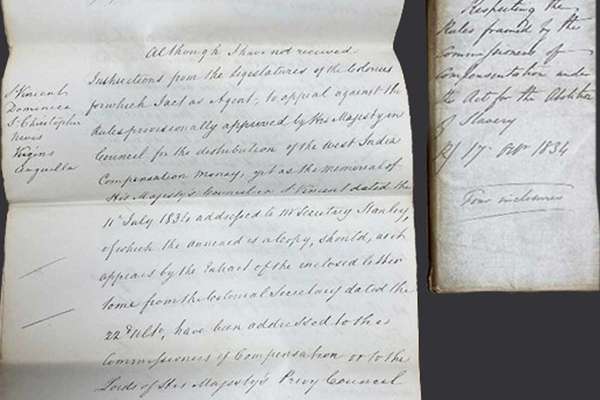 Although I have not received
Instructions from the Legislatures of the Colonies
for which I act as Agent, to appeal against the
Rules provisionally approved by His Majesty in
Council for the distribution of the West India
Compensation Money, yet as the memorial of
His Majesty's Council in St Vincent dated the
11th July 1834 addressed to Mr Secretary Stanley,
of which the annexed is a Copy, should, as it
appears by the Extract of the enclosed letter
to me from the Colonial Secretary dated the
22d Ulto, have been addressed to the
Commissioners of Compensation or to the
Lords of His Majesty's Privy Council
St Vincent
Dominica
St Christopher
Nevis
Virgins
Anguilla
Respecting the
Rules framed by the
Commissioners of
Compensation under
the Act for the Abolition
of Slavery
17 1834
Four inclosures